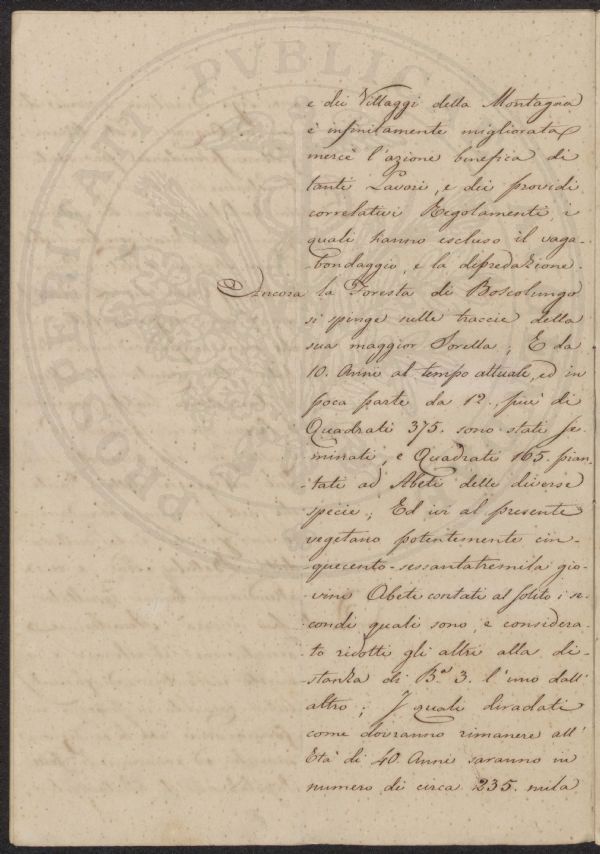 e dei Villaggi della Montagna
è infinitamente migliorata
mercè l'azione benefica di
tanti Lavori, e dei providi
correlativi Regolamenti, i
quali hanno escluso il vaga-
-bondaggio, e la depredazione.
Ancora la Foresta di Boscolungo
si spinge sulle traccie della
sua maggior Sorella; E da
10. Anni al tempo attuale, ed in
poca parte da 12., più di
Quadrati 375. sono stati se-
minati, e Quadrati 165. pian-
tati ad Abeti delle diverse
specie; Ed ivi al presente
vegetano potentemente cin-
quecento-sessantatremila gio-
vini Abeti contati al solito i se-
condi quali sono, e considera-
to ridotti gli altri alla di-
stanza di B.a 3. l'uno dall'
altro; I quali diradati
come dovranno rimanere all'
Età di 40 Anni saranno in
numero di circa 235. mila
PUBLICAE
PROSPERITATI